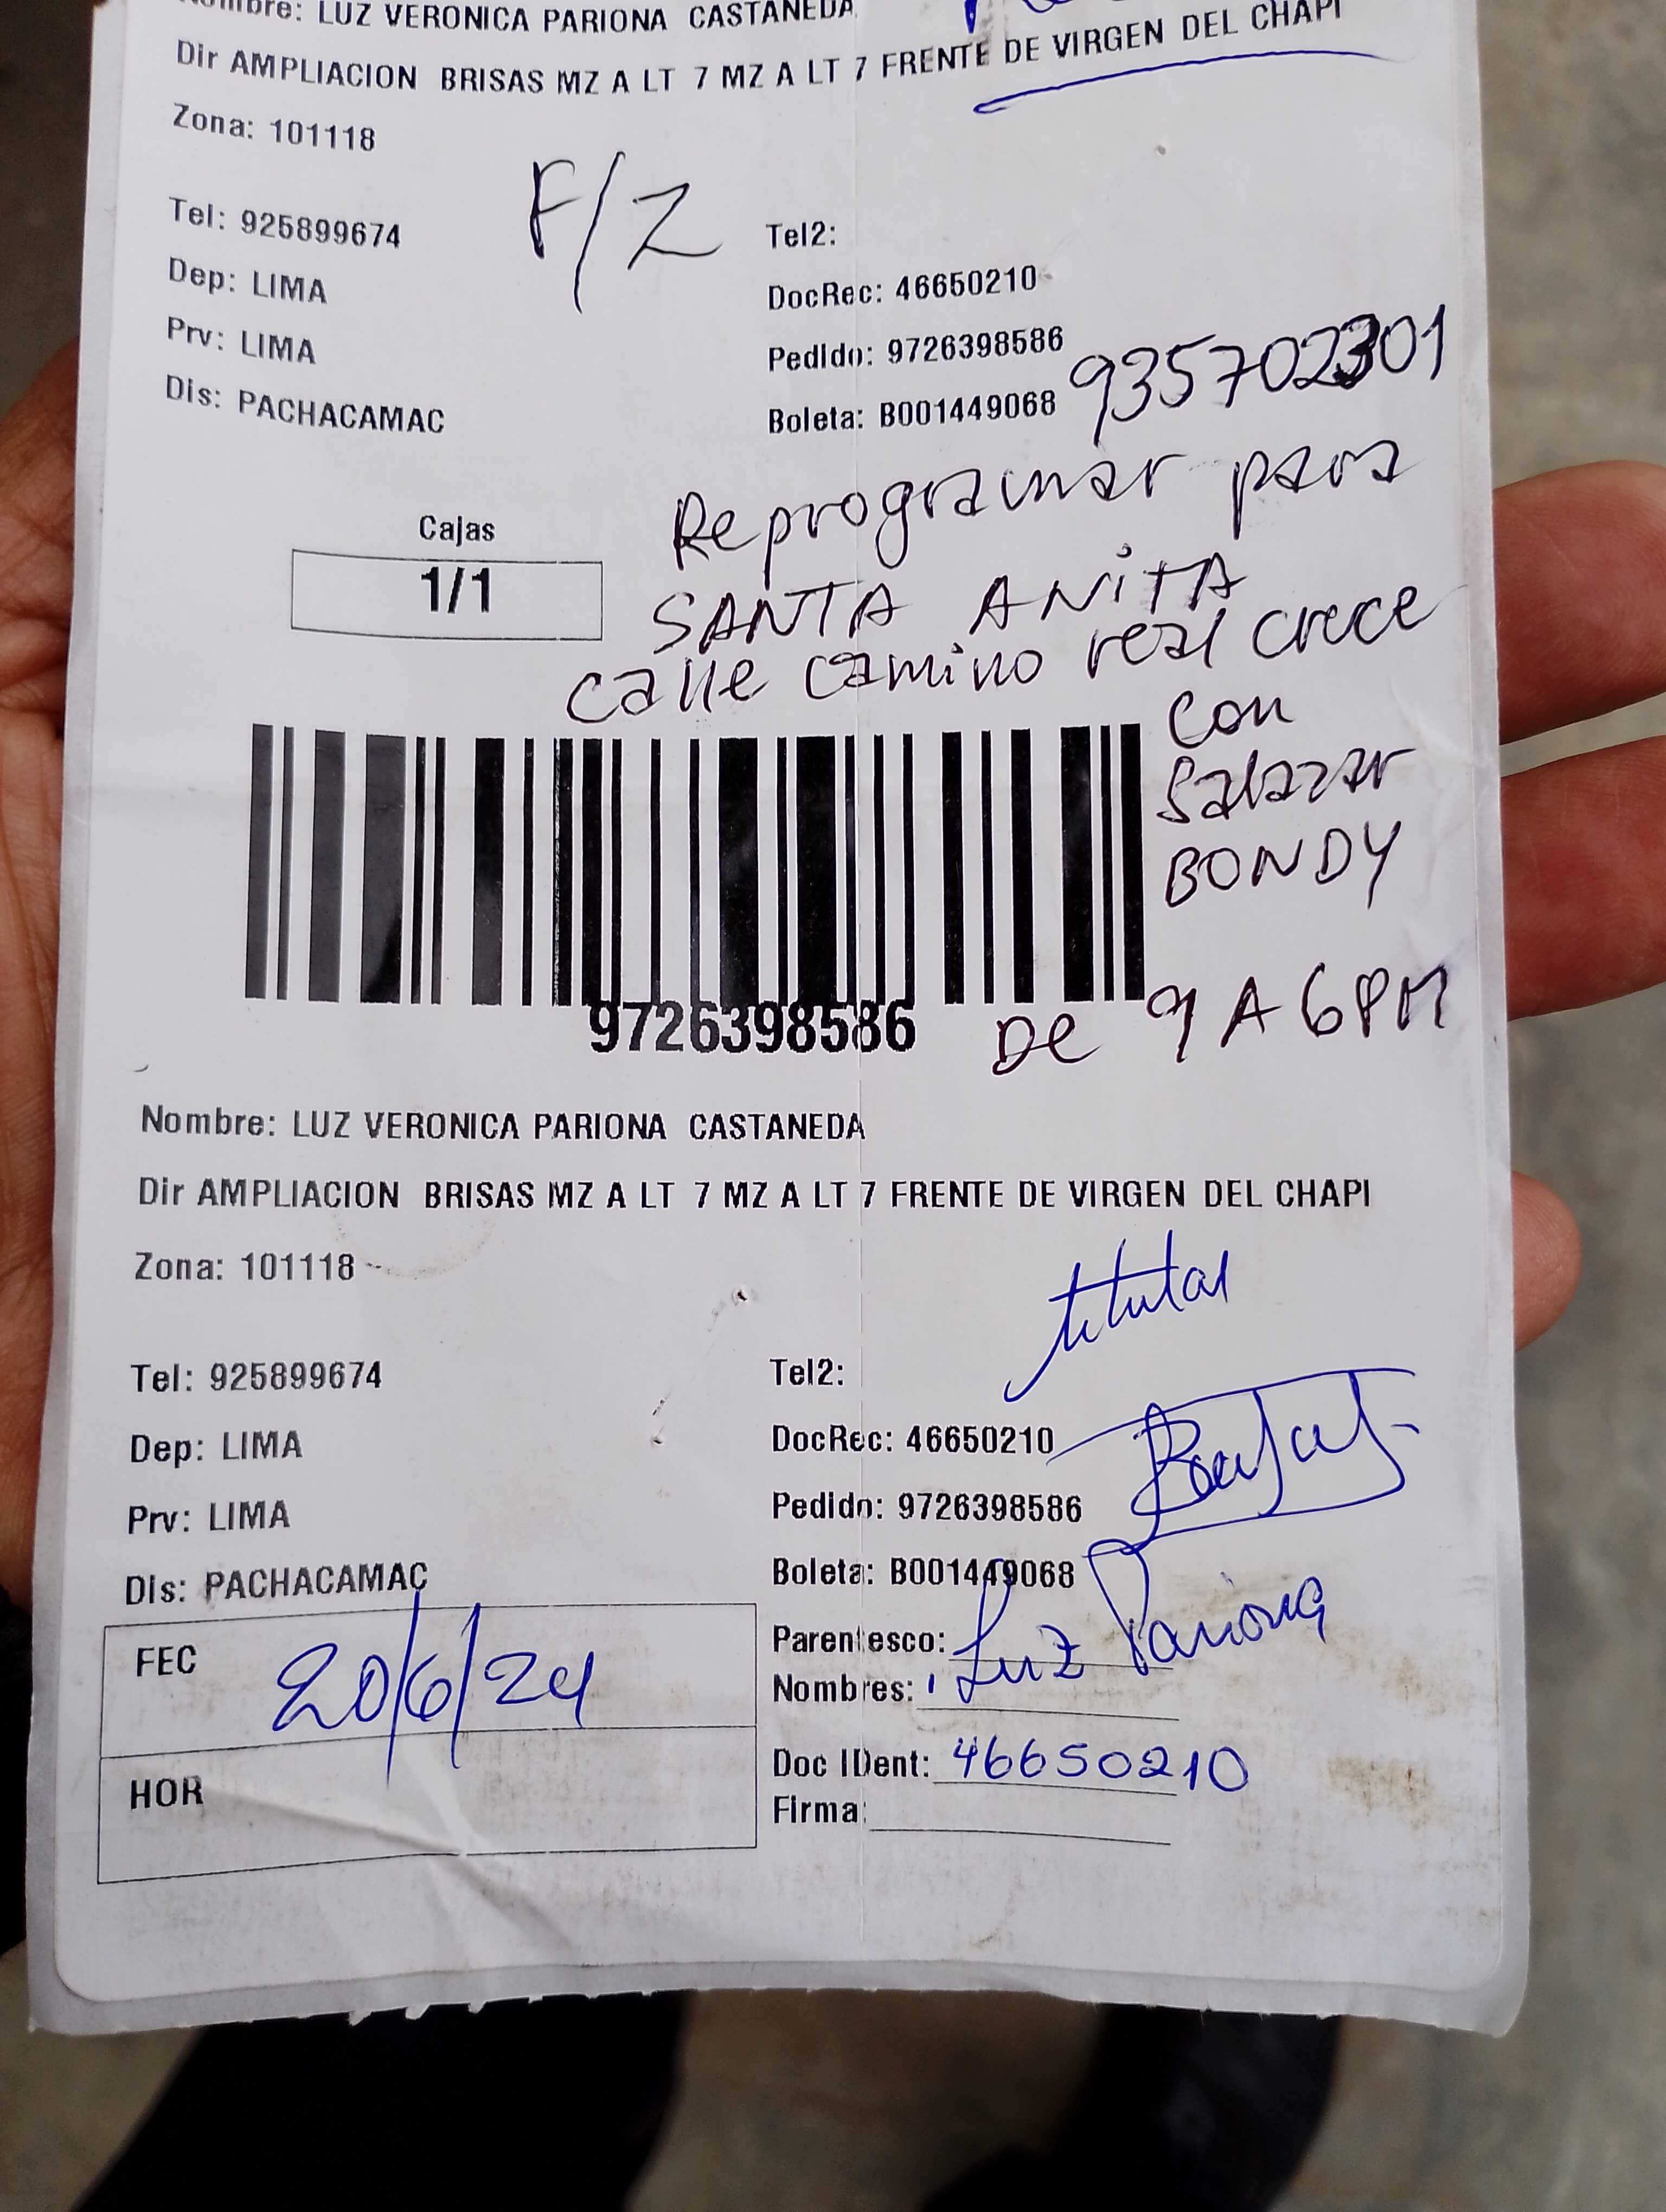 Nombre: LUZ VERONICA PARIONA CASTANEDA
Dir AMPLIACION BRISAS MZ A LT 7 MZ A LT 7 FRENTE DE VIRGEN DEL CHAPI
Zona: 101118
F/Z
Tel: 925899674
Tel2:
Dep: LIMA
DocRec: 46650210
Prv: LIMA
Pedido: 9726398586
935702301
Dis: PACHACAMAC
Boleta: B001449068
Reprogramar para
Cajas
1/1
SANTA ANITA
calle camino real crece
con
Salazar
BONDY
9726398586
De 9 A 6PM
Nombre: LUZ VERONICA PARIONA CASTANEDA
Dir AMPLIACION BRISAS MZ A LT 7 MZ A LT 7 FRENTE DE VIRGEN DEL CHAPI
Zona: 101118
titular
Tel: 925899674
Tel2:
Dep: LIMA
DocRec: 46650210
Prv: LIMA
Pedido: 9726398586
Dis: PACHACAMAC
Boleta: B001449068
FEC 20/6/24
Parentesco:
Nombres: Luz Pariona
HOR
Doc IDent: 46650210
Firma: